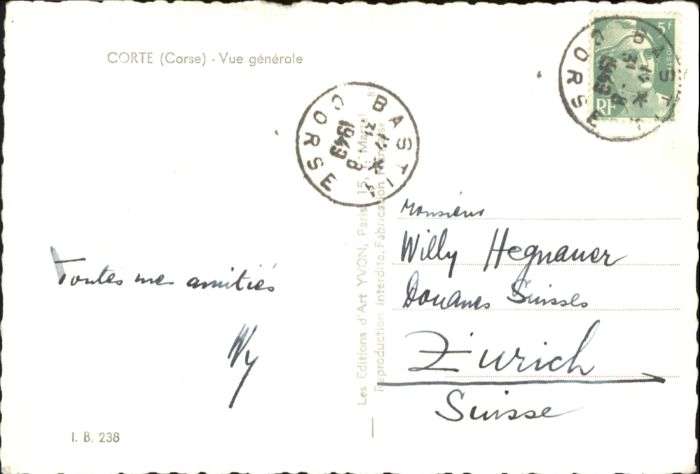 CORTE (Corse) - Vue générale
BASTIA
31 - 8
1949
CORSE
5F
RF
BASTIA
31 - 8
1949
CORSE
Toutes mes amitiés
Wy
Les Editions d'Art YVON, Paris, 15, Martel
Reproduction Interdite. Fabrication Française
Monsieur
Willy Hegnauer
Douanes Suisses
Zürich
Suisse
I. B. 238